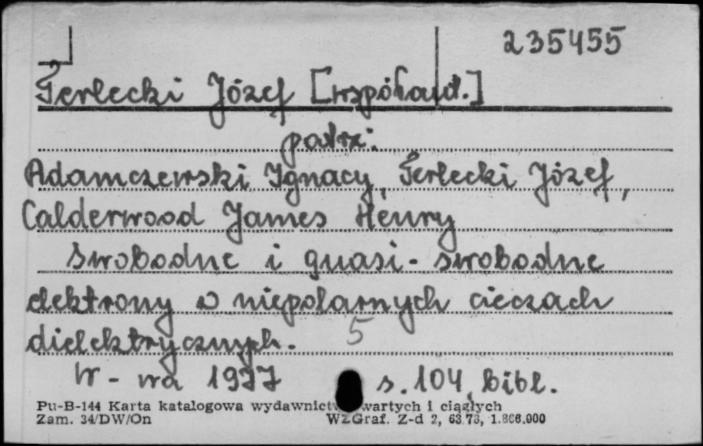 235455
Terlecki Józef [współaut.]
patrz:
Adamczewski Ignacy, Terlecki Józef,
Calderwood James Henry
Swobodne i quasi-swobodne
elektrony w niepolarnych cieczach
dielektrycznych. 5
W-wa 1977 s. 104, bibl.
Pu-B-144 Karta katalogowa wydawnictw zwartych i ciągłych
Zam. 34/DW/On WZGraf. Z-d 2, 63.73, 1.806.000